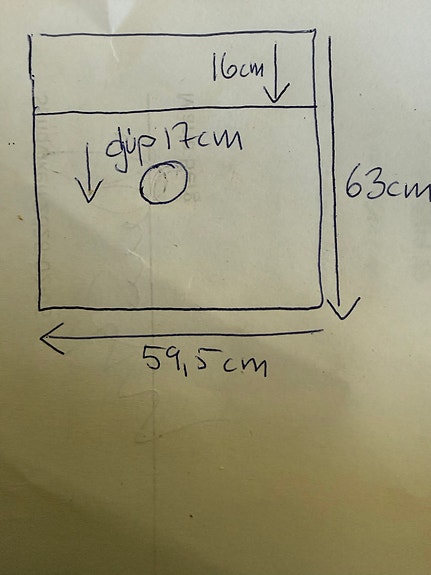 16cm
djúp 17cm
63cm
59,5cm